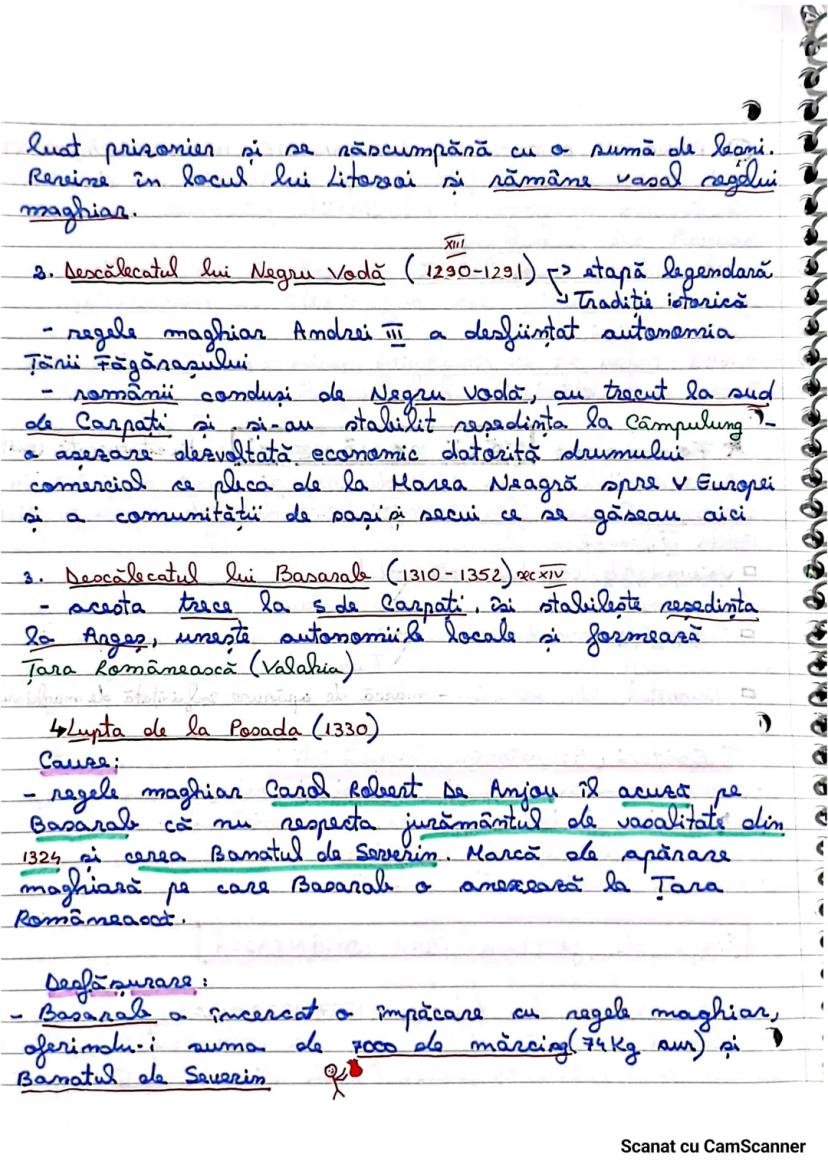 luat prizonier și se răscumpără cu o sumă de bani.
Revine în locul lui Litovoi și rămâne vasal regelui
maghiar.
XIII
2. Descălecatul lui Negru Vodă (1290-1291) → etapă legendară
↳ Tradiție istorică
- regele maghiar Andrei III a desființat autonomia
Țării Făgărașului
- românii conduși de Negru Vodă, au trecut la sud
de Carpați și și-au stabilit reședința la Câmpulung -
o așezare dezvoltată economic datorită drumului
comercial ce pleca de la Marea Neagră spre V Europei
și a comunității de sași și secui ce se găseau aici
3. Descălecatul lui Basarab (1310-1352) sec XIV
- acesta trece la S de Carpați, își stabilește reședința
la Argeș, unește autonomiile locale și formează
Țara Românească (Valahia)
↳ Lupta de la Posada (1330)
Cauze:
- regele maghiar Carol Robert De Anjou îl acuză pe
Basarab că nu respecta jurământul de vasalitate din
1324 și cerea Banatul de Severin. Marcă de apărare
maghiară pe care Basarab o anexează la Țara
Româneasct.
Desfășurare:
- Basarab a încercat o împăcare cu regele maghiar,
oferindu-i suma de 7000 de mărci (74Kg aur) și
Banatul de Severin
Scanat cu CamScanner